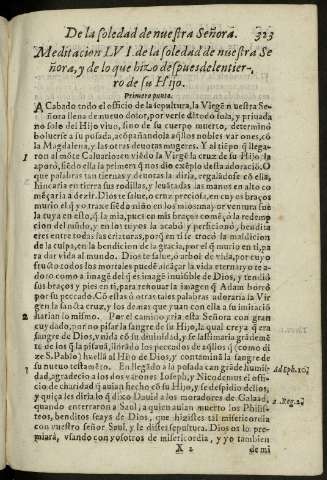 De la soledad de nuestra Señora. 323
Meditacion LVI. de la soledad de nuestra Se
ñora, y de lo que hizo despues del entier-
ro de su Hijo.
Primero punto.
ACabado todo el officio de la sepultura, la Virgẽ nuestra Se-
ñora llena de nueuo dolor, por verse dl todo sola, y priuada
no solo del Hijo viuo, sino de su cuerpo muerto, determinò
boluerse a su posada, acõpañandola aq̃llos nobles varones, cõ
la Magdalena, y las otras deuotas mugeres. Y al tiẽpo q̃ llega-
1 ron al mõte Caluario en viẽdo la Virgẽ la cruz de su Hijo, la
adorò, siẽdo ella la primera q̃ nos dio exẽplo desta adoraciõ. O
que palabras tan tiernas y deuotas la diria, regalãdose cõ ella,
hincaria en tierra sus rodillas, y leuãtadas las manos en alto co
mẽçaria a dezir. Dios te salue, o cruz preciosa, en cuyos braços
murio el q̃ yo traxe siẽdo niño en los mios: mayor ventura fue
la tuya en esto, q̃ la mia, pues en mis braços començò la redemp
cion del mũdo, y en los tuyos la acabò y perficionò, bendita
eres entre todas las criaturas, porq̃ en ti se trocò la maldicion
de la culpa, en la bendicion de la gracia, por el q̃ murio en ti, pa
ra dar vida al mundo. Dios te salue, ò arbol de vida, por cuyo
fructo todos los mortales puedẽ alcãçar la vida eterna: yo te a-
doro como a imagẽ del q̃ es imagẽ inuisible de Dios, y tendiò
sus braços y pies en ti, para renouar la imagen q̃ Adam borrò
por su peccado. Cõ estas ò otras tales palabras adoraria la Vir
gen la sancta cruz, y los demas que yuan con ella a su imitaciõ
2 harian lo mismo. Por el camino yria esta Señora con gran
cuydado, por no pisar la sangre de su Hijo, la qual creya q̃ era
sangre de Dios, vnida cõ su diuinidad, y se lastimaria grãdemẽ
te de los q̃ la pisauã, llorãdo los peccados de aq̃llos q̃ (como di
ze S. Pablo) huellã al Hijo de Dios, y contaminã la sangre de
su nueuo testamẽto. En llegãdo a la posada cõ grãde humil- Ad Eph. 10.
dad, agradecio a los dos varones Ioseph, y Nicodemus el offi-
cio de charidad q̃ auian hecho cõ su Hijo, y se despidio dellos,
y quiça les diria lo q̃ dixo Dauid a los moradores de Galaad, 2. Reg. 2.
quando enterraron a Saul, a quien auian muerto los Philis-
teos, benditos seays de Dios, que hizistes tal misericordia
con vuestro señor Saul, y le distes sepultura. Dios os lo pre-
miarà, vsando con vosotros de misericordia, y yo tambien
X 2 de mi